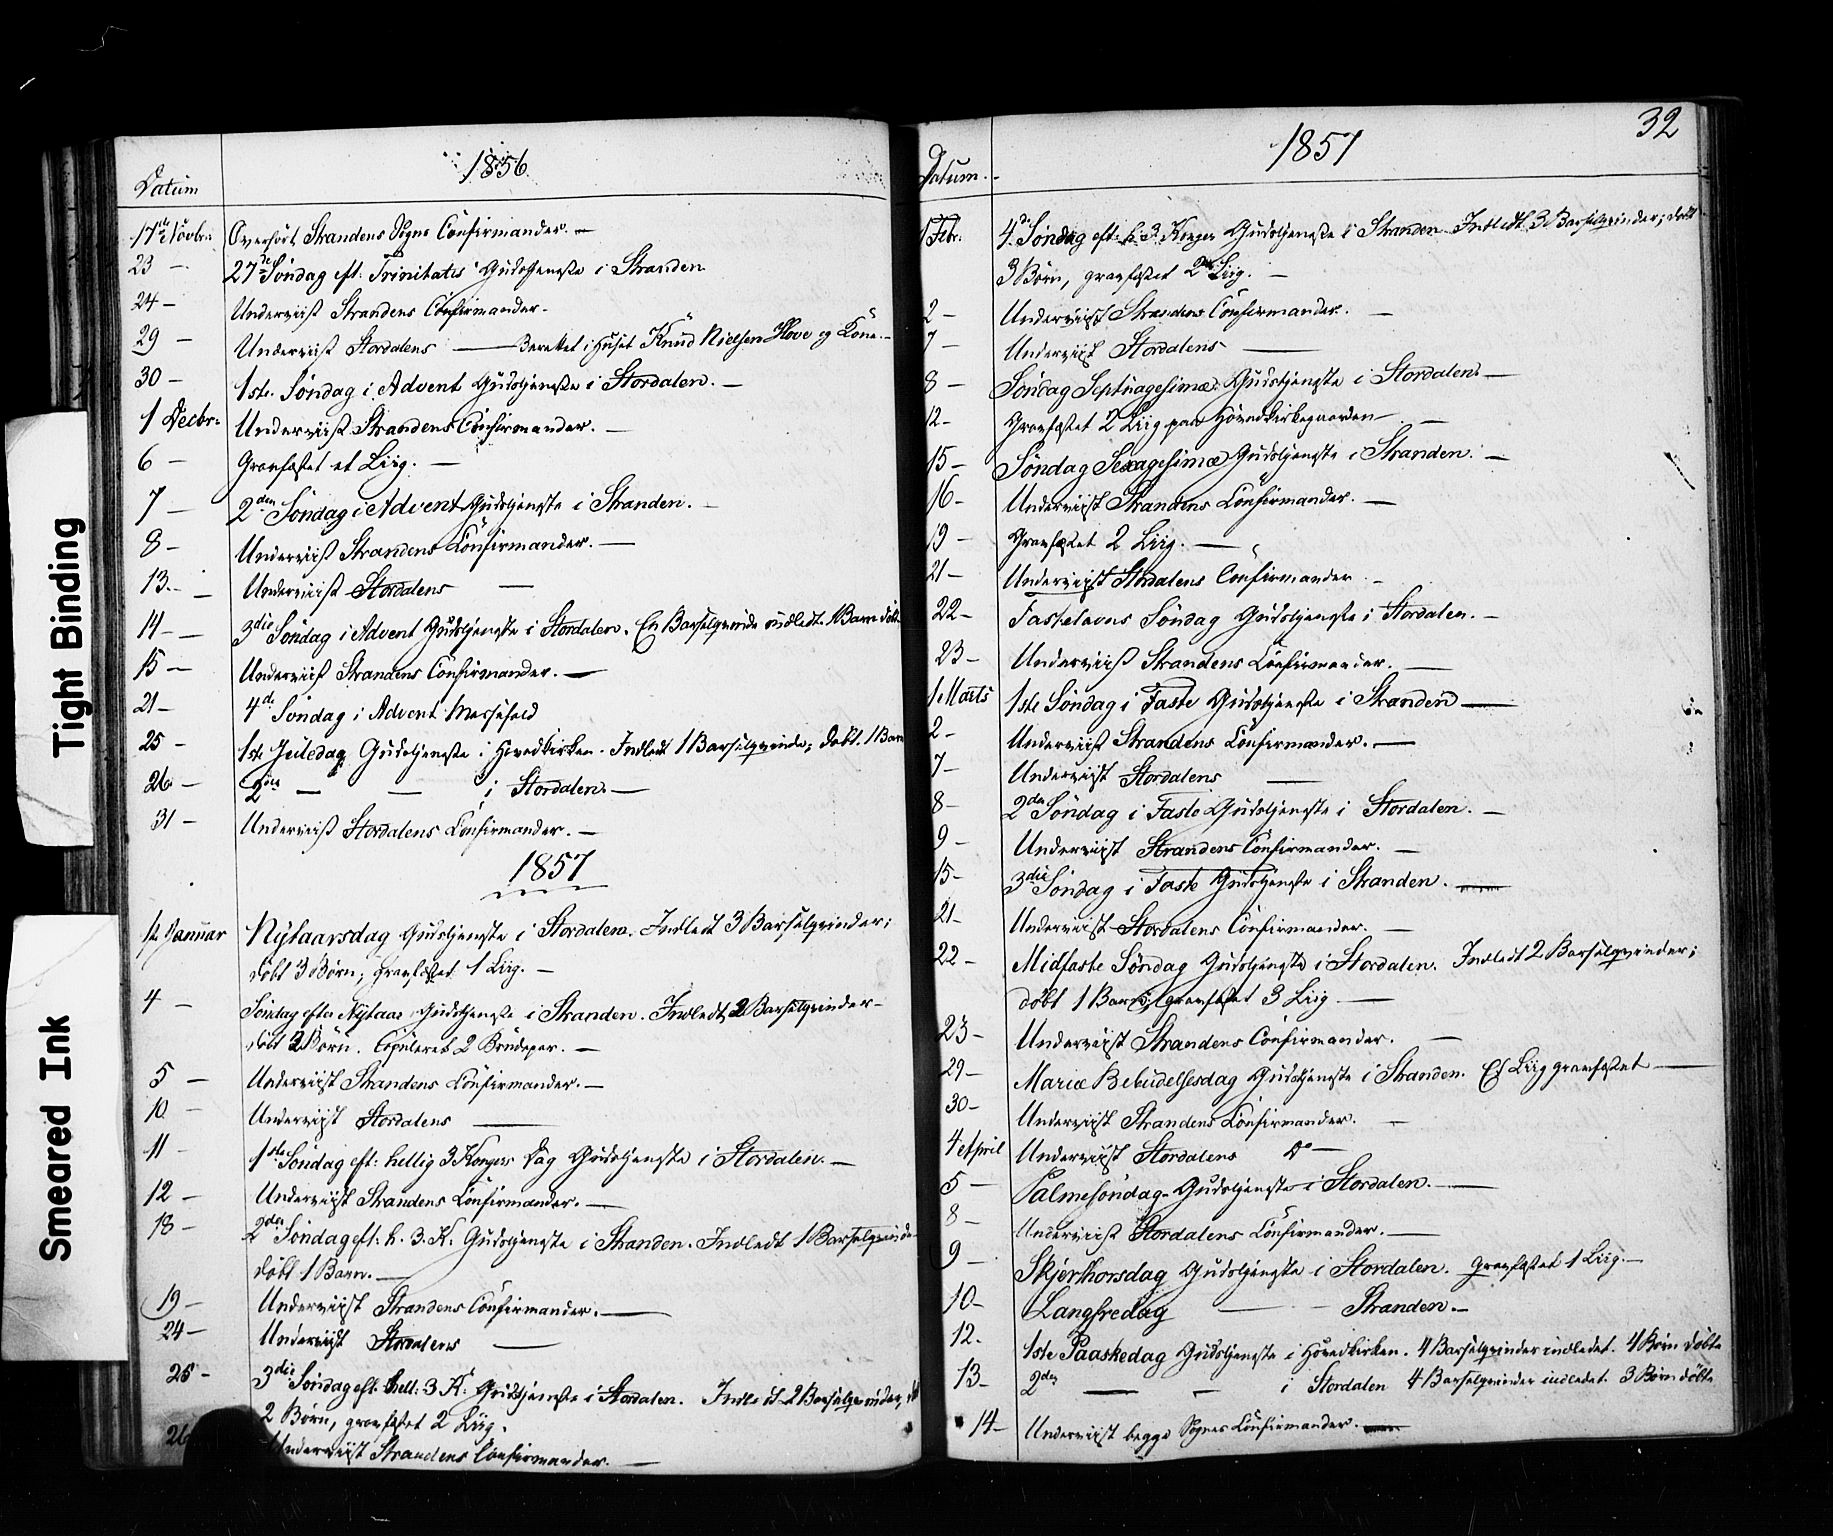 Tight Binding
Smeared Ink
Datum
1856.
17de Novbr: Overhört Strandens Sogns Confirmander. —
23 — 27de Söndag eft: Trinitatis Gudstjeneste i Stranden
24 — Underviist Strandens Confirmander. -
29 — Underviist Stordalens — Berettet i Huset Knud Nielsen Hove og Kone. -
30 — 1ste Söndag i Advent Gudstjeneste i Stordalen. —
1 Decbr: Underviist Strandens Confirmander. —
6 — Gravfæstet et Liig. —
7 — 2den Söndag i Advent Gudstjeneste i Stranden. —
8 — Underviist Strandens Confirmander. —
13. — Underviist Stordalens —
14 — 3die Söndag i Advent Gudstjeneste i Stordalen. En Barselqvinde indledt. 1 Barn döbt.
15 — Underviist Strandens Confirmander. —
21 — 4de Söndag i Advent Messefald
25 — 1ste Juledag Gudstjeneste i Hovedkirken. Indledt 1 Barselqvinde; döbt 1 Barn
26 — 2den — — i Stordalen. —
31 — Underviist Stordalens Confirmander. —
1857
1ste Januar Nytaarsdag Gudstjeneste i Stordalen. Indledt 3 Barselqvinder;
döbt 3 Börn; gravfæstet 1 Liig. —
4 — Söndag efter Nytaar Gudstjeneste i Stranden. Indledt 2 Barselqvinder —
döbt 2 Börn. Copuleret 2 Brudepar. —
5 — Underviist Strandens Confirmander. —
10 — Underviist Stordalens —
11 — 1ste Söndag eft: hellig 3 Kongers Dag Gudstjeneste i Stordalen. —
12 — Underviist Strandens Confirmander. —
18 — 2den Söndag eft: h. 3. K. Gudstjeneste i Stranden. Indledt 1 Barselqvinde
döbt 1 Barn. —
19 — Underviist Strandens Confirmander. —
24 — Underviist Stordalens —
25 — 3die Söndag eft: hell: 3 K. Gudstjeneste i Stordalen. Indledt 2 Barselqvinder,
2 Börn, gravfæstet 2 Liig.
26 Underviist Strandens Confirmander. —
32
Datum. -
1857
1 Febr: 4de Söndag eft: h. 3 Konger Gudstjeneste i Stranden. Indledt 3 Barselqvinder; döbt
3 Börn, gravfæstet 2 Liig. —
2 — Underviist Strandens Confirmander. —
7 — Underviist Stordalens —
8 — Söndag Septuagesimæ Gudstjeneste i Stordalen. —
12 — Gravfæstet 2 Liig paa Hovedkirkegaarden —
15 — Söndag Sexagesimæ Gudstjeneste i Stranden. —
16 — Underviist Strandens Confirmander. —
19 — Gravfæstet 2 Liig. —
21 — Underviist Stordalens Confirmander. —
22 — Fastelavns Söndag Gudstjeneste i Stordalen. —
23 — Underviist Strandens Confirmander. —
1 Marts 1ste Söndag i Faste Gudstjeneste i Stranden —
2 — Underviist Strandens Confirmander. —
7 — Underviist Stordalens —
8 — 2den Söndag i Faste Gudstjeneste i Stordalen. —
9 — Underviist Strandens Confirmander. —
15 — 3die Söndag i Faste Gudstjeneste i Stranden. —
21 — Underviist Stordalens Confirmander. —
22 — Midfaste Söndag Gudstjeneste i Stordalen. Indledt 2 Barselqvinder;
döbt 1 Barn; gravfæstet 3 Liig. —
23 — Underviist Strandens Confirmander. —
29 — Mariæ Bebudelsesdag Gudstjeneste i Stranden. Et Liig gravfæstet —
30 — Underviist Strandens Confirmander. —
4 April Underviist Stordalens Do —
5 — Palmesöndag Gudstjeneste i Stordalen. —
8 — Underviist Stordalens Confirmander. —
9 — Skjerthorsdag Gudstjeneste i Stordalen. Gravfæstet 1 Liig. —
10 — Langfredag — — Stranden. —
12. 1ste Paaskedag Gudstjeneste i Hovedkirken. 4 Barselqvinder indledet. 4 Börn döbte
13 — 2den — — i Stordalen 4 Barselqvinder indledet. 3 Börn döbte
14 — Underviist begge Sognes Confirmander. —